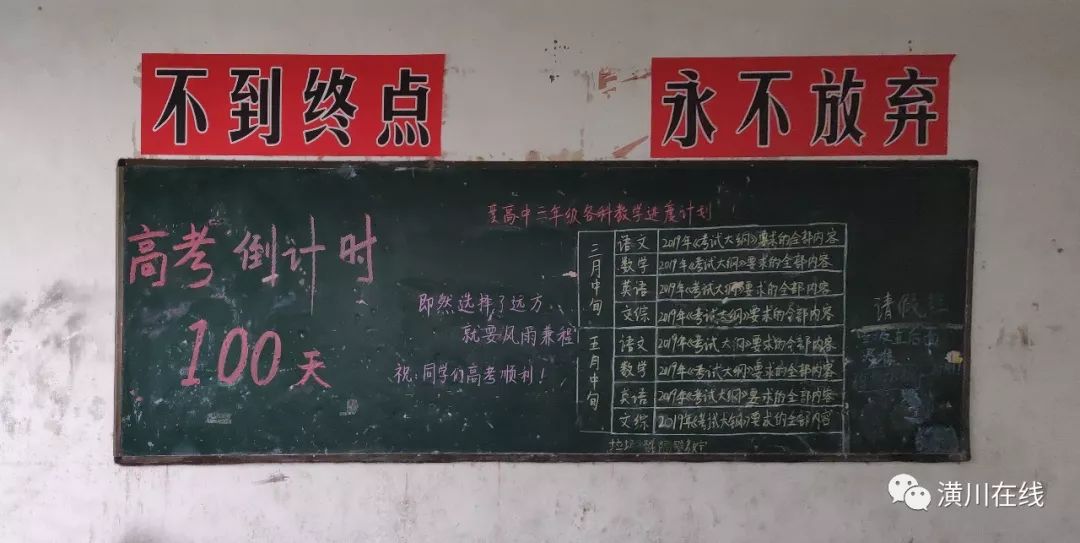 不到终点
永不放弃
高考倒计时
100天
即然选择了远方
就要风雨兼程
祝:同学们高考顺利!
高中三年级各科教学进度计划
三月中旬
语文 2019年《考试大纲》要求的全部内容
数学 2019年《考试大纲》要求的全部内容
英语 2019年《考试大纲》要求的全部内容
文综 2019年《考试大纲》要求的全部内容
五月中旬
语文 2019年《考试大纲》要求的全部内容
数学 2019年《考试大纲》要求的全部内容
英语 2019年《考试大纲》要求的全部内容
文综 2019年《考试大纲》要求的全部内容
请假
潢川在线